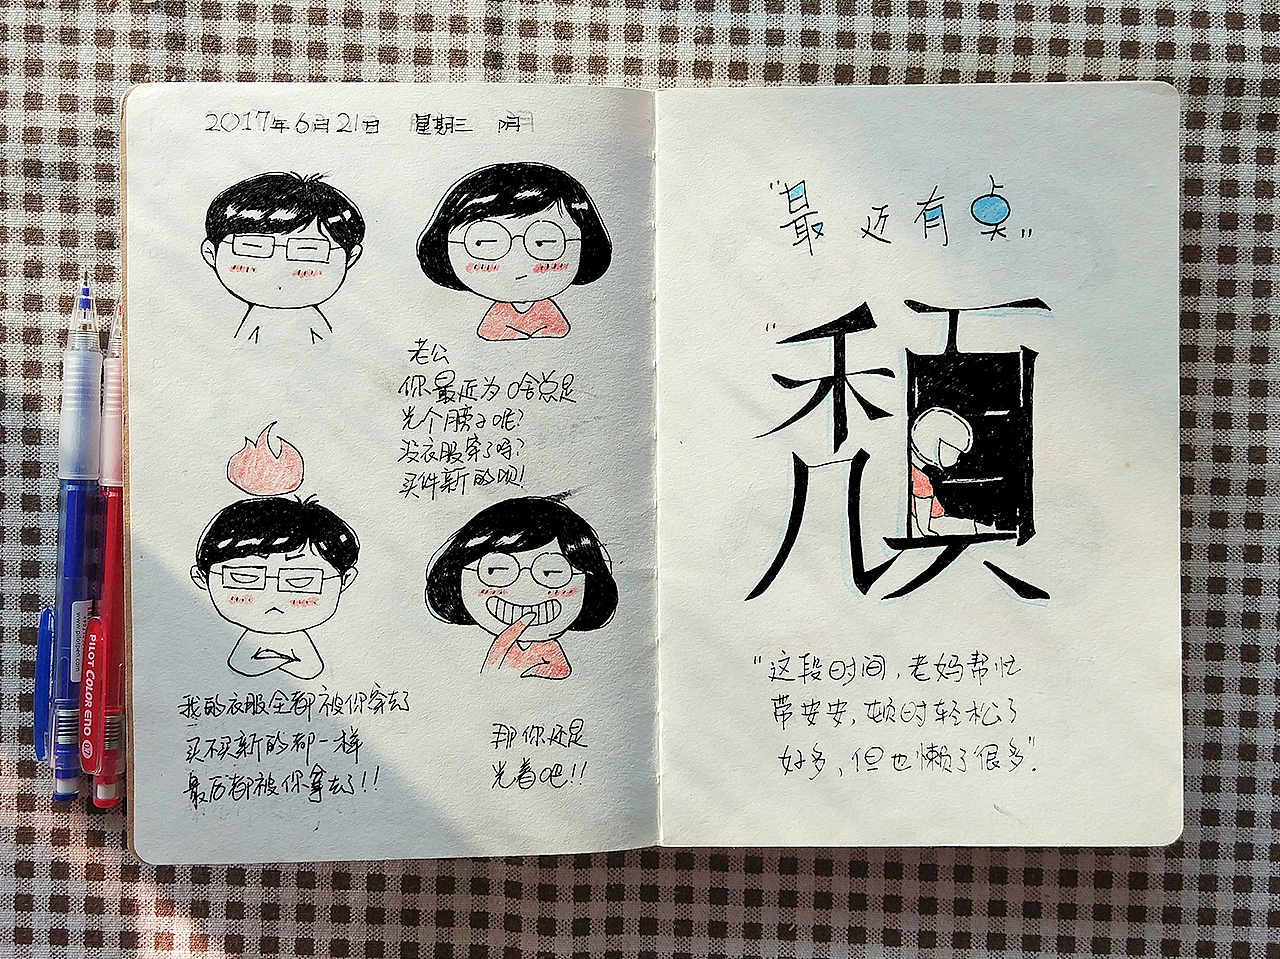 2017年6月21日 星期三 阴
老公
你最近为啥总是
光个膀子呢?
没衣服穿了吗?
买件新的呗!
我的衣服全都被你穿去了
买不买新的都一样
最后都被你拿去了!!
那你还是
光着吧!!
"最近有点"
"頹
"这段时间,老妈帮忙
带安安,顿时轻松了
好多,但也懒了很多"
www.pilotpen.com
PILOT COLOR ENO